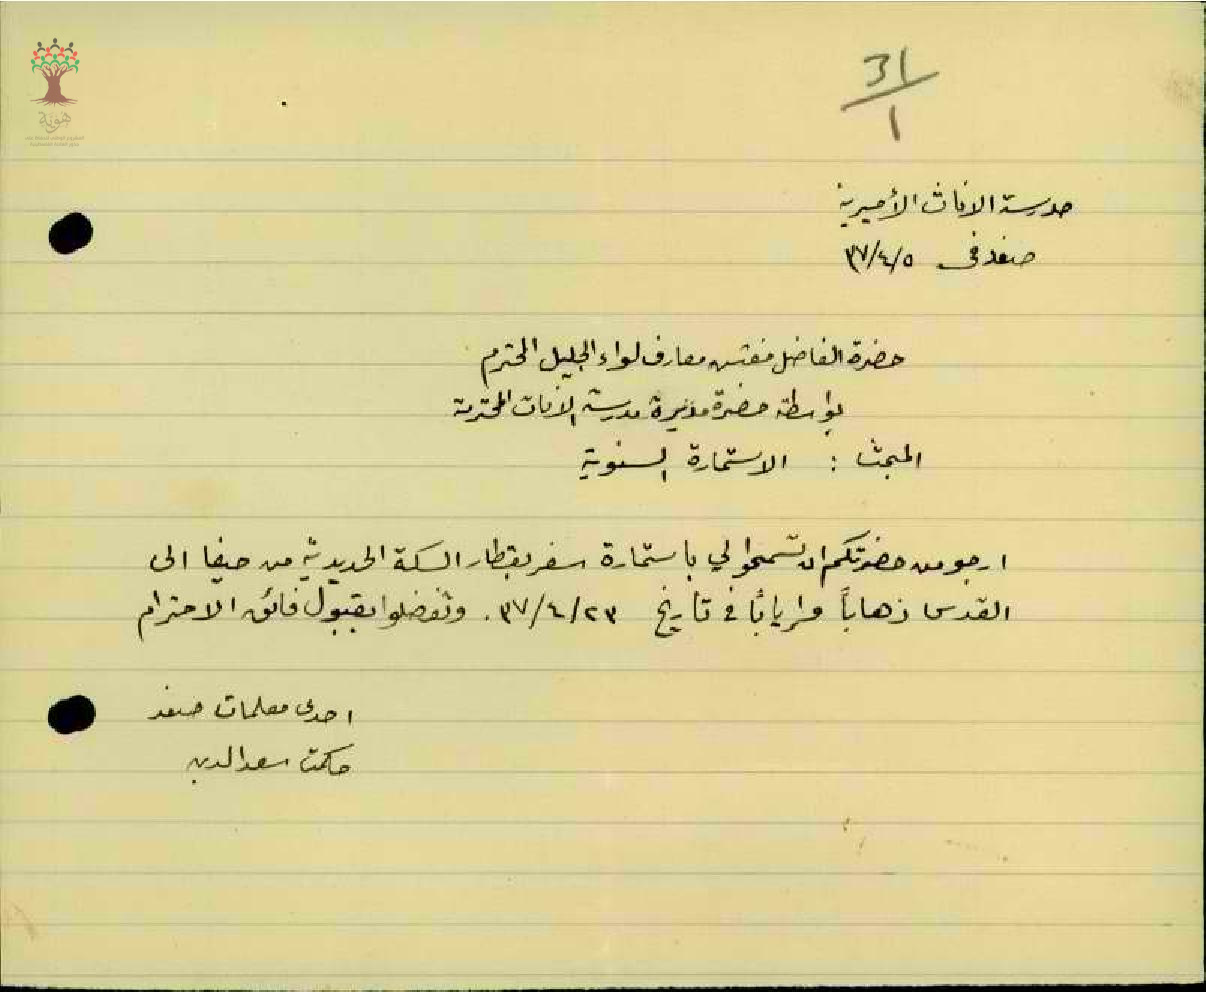 هوية
31
1
مدرسة الاناث الأميرية
صفد في ٣٧/٤/٥
حضرة الفاضل مفتش معارف لواء الجليل المحترم
بواسطة حضرة مديرة مدرسة الاناث المحترمة
المبحث : الاستمارة السنوية
ارجو من حضرتكم ان تسمحوا لي باستمارة سفر بقطار السكة الحديدية من حيفا الى
القدس ذهاباً وإياباً في تاريخ ٣٧/٤/٢٣. وتفضلوا بقبول فائق الاحترام
احدى معلمات صفد
حكمت سعد الدين